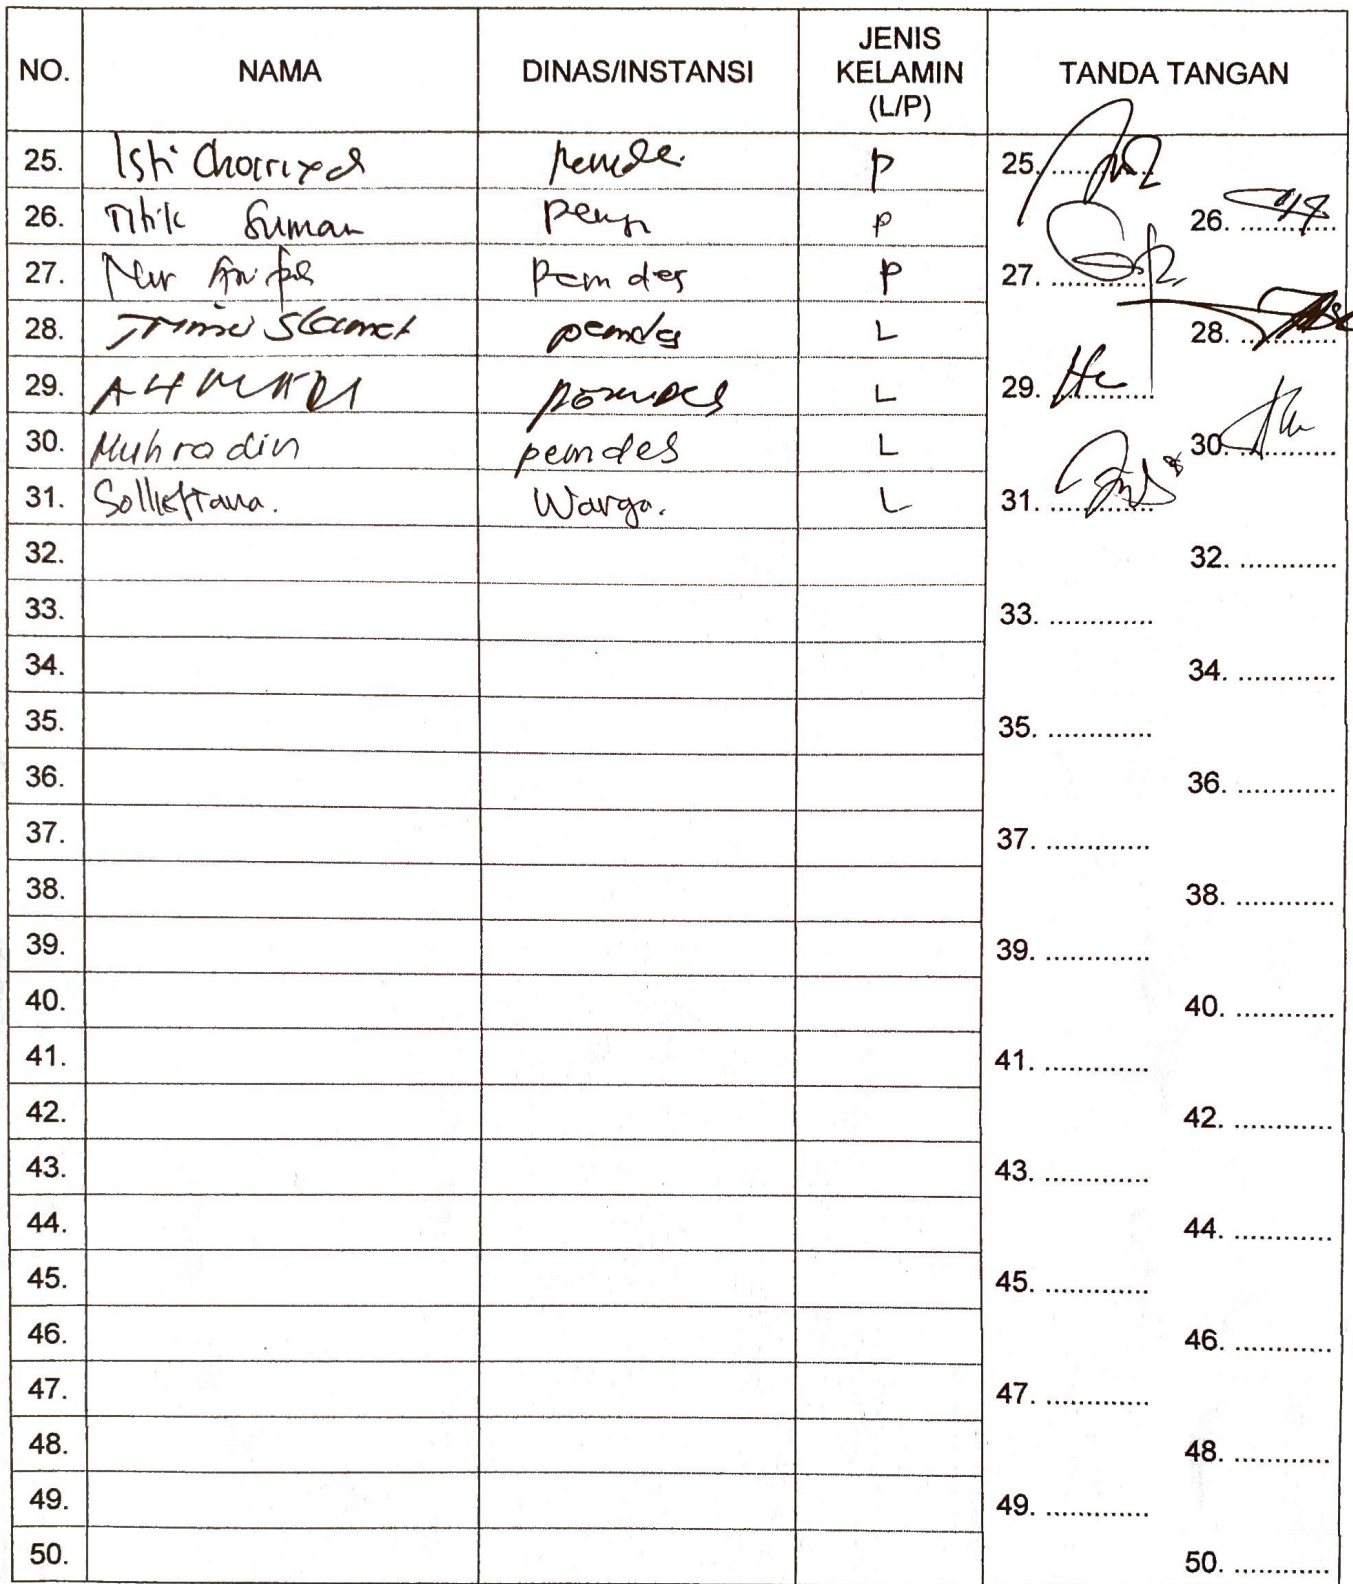 NO. NAMA DINAS/INSTANSI JENIS KELAMIN (L/P) TANDA TANGAN
25. Isti pemde. P 25. ............
26. Titik Suman P 26. ............
27. Nur pemdes P 27. ............
28. Slamet pemdes L 28. ............
29. L 29. ............
30. Muhrodin pemdes L 30. ............
31. Warga. L 31. ............
32. 32. ............
33. 33. ............
34. 34. ............
35. 35. ............
36. 36. ............
37. 37. ............
38. 38. ............
39. 39. ............
40. 40. ............
41. 41. ............
42. 42. ............
43. 43. ............
44. 44. ............
45. 45. ............
46. 46. ............
47. 47. ............
48. 48. ............
49. 49. ............
50. 50. ............